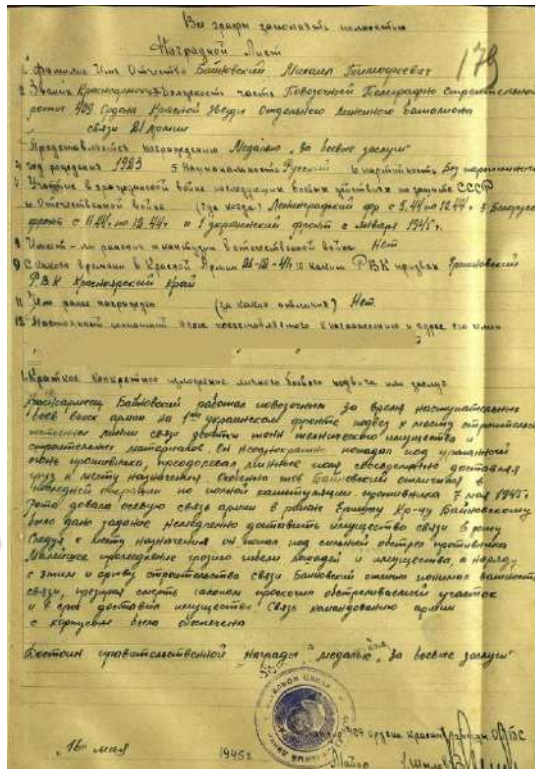 Все графы заполнять полностью
179
Наградной Лист
1. Фамилия Имя Отчество Байновский Михаил Тимофеевич
2 Звание Красноармеец Должность часть Повозочный Телеграфно строительной
роты 489 Ордена Красной Звезды Отдельного Линейного батальона
связи 21 Армии
Представляется к награждению Медалью „За боевые заслуги"
4 год рождения 1923 5 Национальность Русский 6 партийность Без партийный
7 Участие в гражданской войне последующих боевых действиях по защите СССР
и Отечественной войне (где когда) Ленинградский фр с 9.44 по 12.44 3 Белорус
фронт с 11.44 по 12.44 и 1 украинский фронт с января 1945г.
8 Имеет-ли ранения и контузии в отечественной войне Нет
9 С какого времени в Красной Армии 10 каким РВК призван
РВК Красноярский Край
11 Чем ранее награжден (за какие отличия) Нет
12 Постоянный домашний адрес представляемого к награждению и адрес его семьи
1. Краткое конкретное изложение личного боевого подвига или заслуг
Красноармеец Байновский работая повозочным за время наступательных
боев войск армии на 1ом украинском фронте подвез к месту строительства
линии связи десятки тонн технического имущества и
строительных материалов. Он неоднократно попадал под ураганный
огонь противника, преодолевал минные поля своевременно доставлял
груз к месту назначения. Особенно тов Байновский отличился в
последней операции по полной капитуляции противника 7 мая 1945г.
Рота давала осевую связь армии в районе Кр-цу Байновскому
было дано задание немедленно доставить имущество связи в роту
Следуя к месту назначения он попал под сильный обстрел противника
Малейшее промедление грозило гибели лошадей и имущества, а наряду
с этим и срыву строительства связи Байновский отлично понимал важность
связи, презирая смерть галопом проскочил обстреливаемый участок
и в срок доставил имущество. Связь командованию армии
с корпусом была обеспечена
Достоин правительственной награды медалью „За боевые заслуги"
ордена красной звезды ОЛБС
„16" мая 1945г Майор